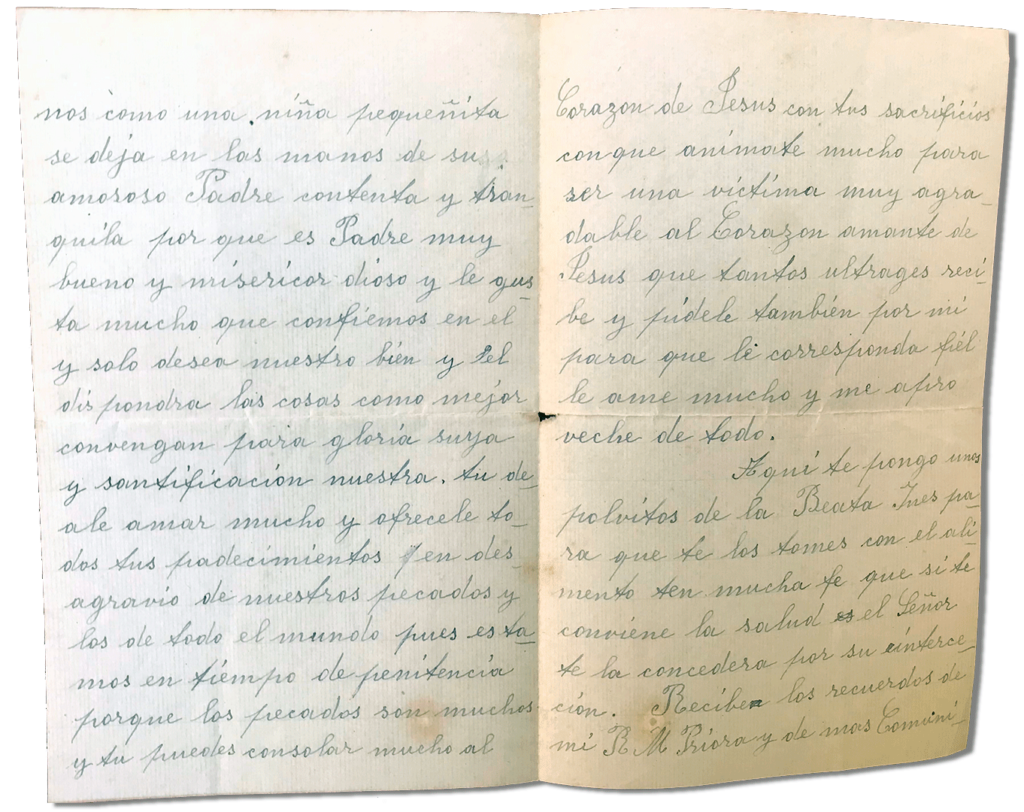 nos como una niña pequeñita
se deja en las manos de su
amoroso Padre contenta y tran_
quila por que es Padre muy
bueno y misericor dioso y le gus_
ta mucho que confiemos en el
y solo desea nuestro bien y El
dis pondra las cosas como mejor
convengan para gloria suya
y santificación nuestra. tu de_
ale amar mucho y ofrecele to_
dos tus padecimientos y en des_
agravio de nuestros pecados y
los de todo el mundo pues esta_
mos en tiempo de penitencia
porque los pecados son muchos
y tu puedes consolar mucho al
Corazon de Jesus con tus sacrificios
conque animate mucho para
ser una victima muy agra_
dable al Corazon amante de
Jesus que tantos ultrages reci_
be y pidele también por mi
para que le corresponda fiel
le ame mucho y me apro
veche de todo.
Aqui te pongo unos
polvitos de la Beata Ines pa_
ra que te los tomes con el ali_
mento ten mucha fe que si te
conviene la salud el Señor
te la concedera por su interce_
ción. Reciben los recuerdos de
mi R M Priora y de mas Comuni_